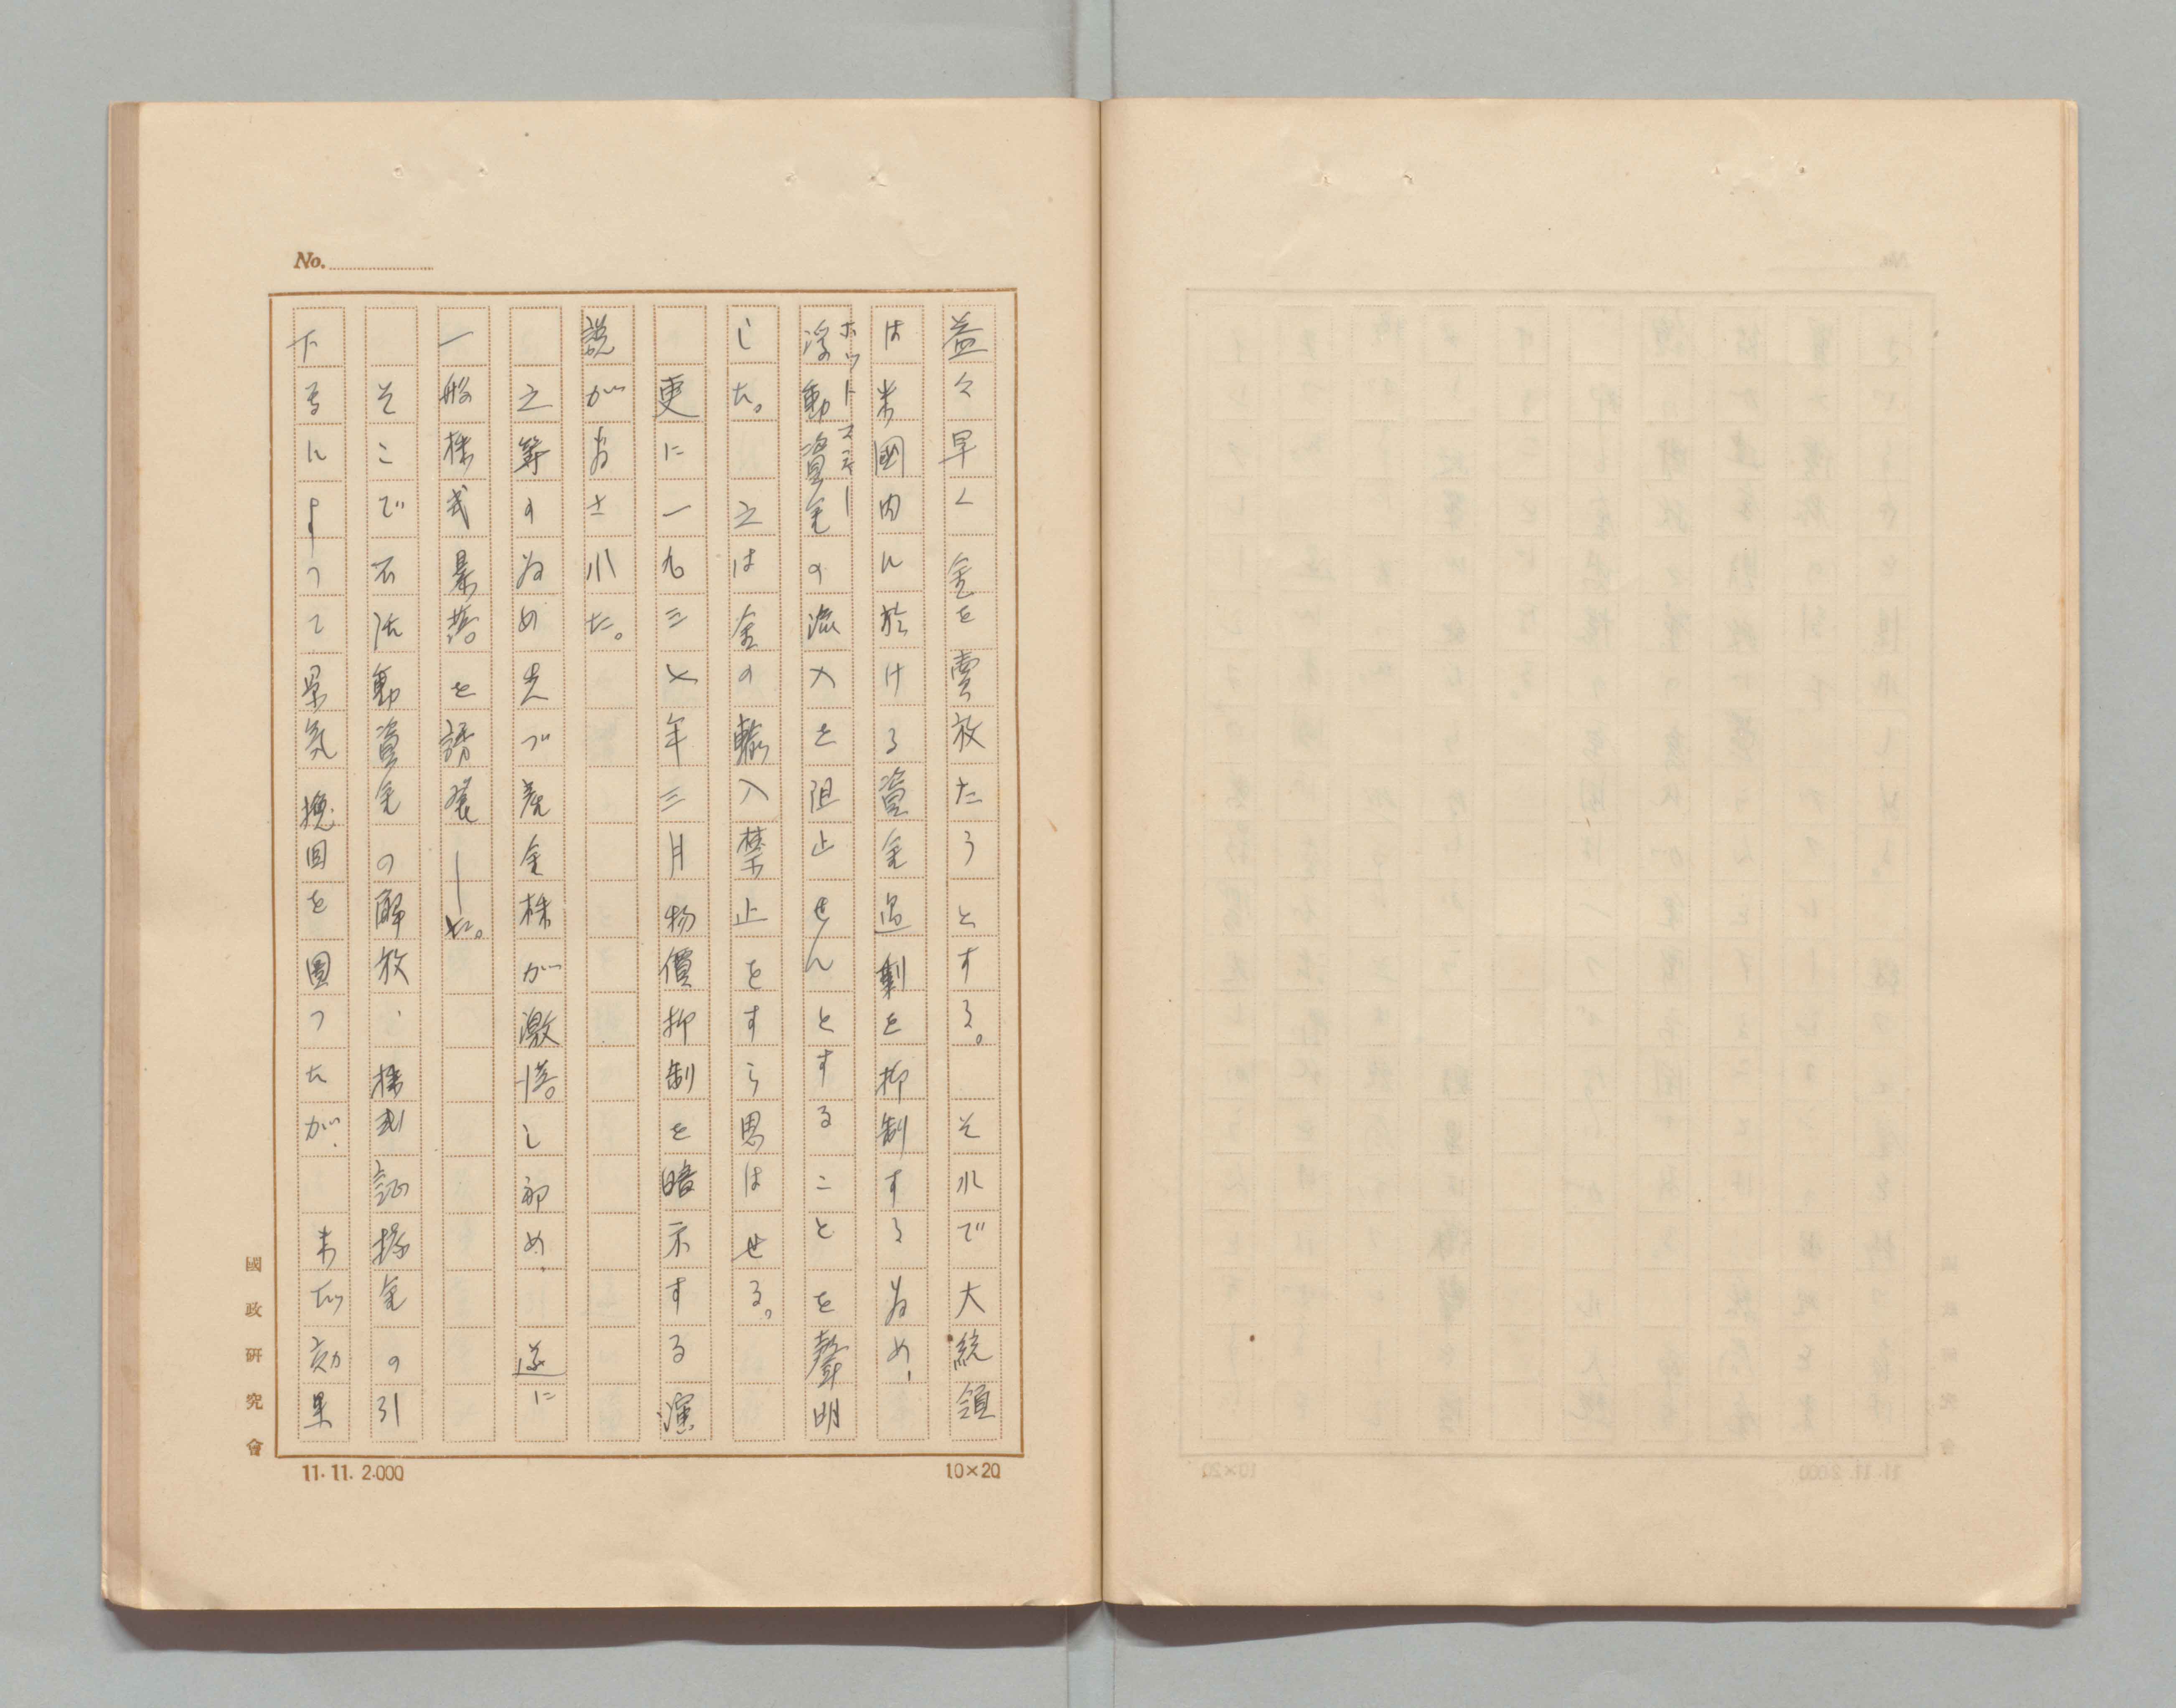 No.
益々早く金を賣放たうとする。それで大統領
は米國内に於ける資金過剰を抑制する為め、
ホットマネー
浮動資金の流入を阻止せんとすることを聲明
した。之は金の輸入禁止をすら思はせる。
更に一九三七年三月物價抑制を暗示する演
説が為された。
之等の為め先づ産金株が激落し初め、遂に
一般株式暴落を誘發した。
そこで不活動資金の解放、株式証據金の引
下等によつて景気挽回を圖つたが、未だ効果
國政研究會
11.11.2.000
10×20